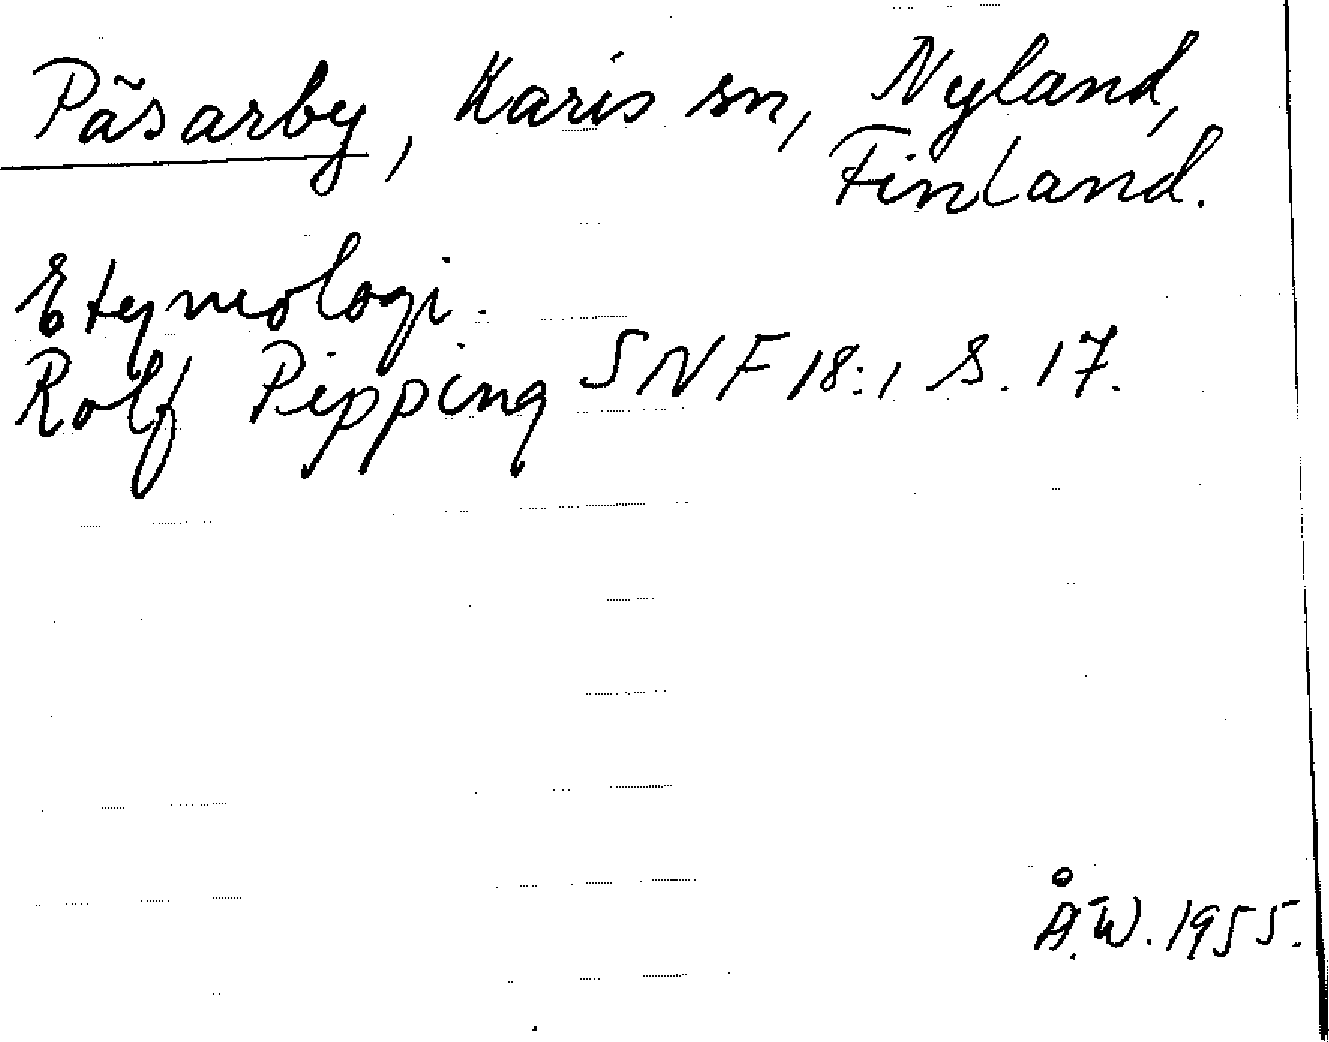 Päsarby, Karis sn, Nyland,
Finland.
Etymologi.
Rolf Pipping SNF 18:1 S. 17.
Å.W. 1955.